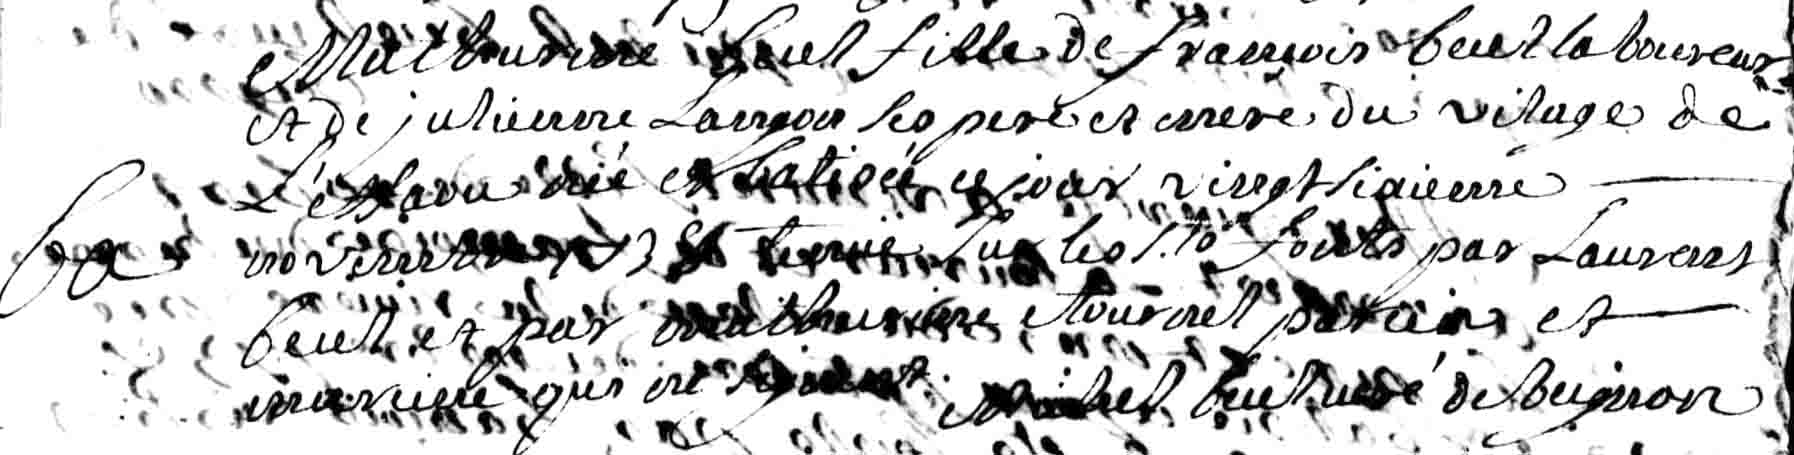 Mathurine beul fille de francois beul laboureur
et de julienne Langou ses pere et mere du vilage de
née et batisée ce jour vingt sixieme
ba novembre 1 3 et tenuë sur les s.ts fonts par Laurens
beul et par mathurine Tournel parain et
maraine qui ne signent. Michel beul curé de beignon